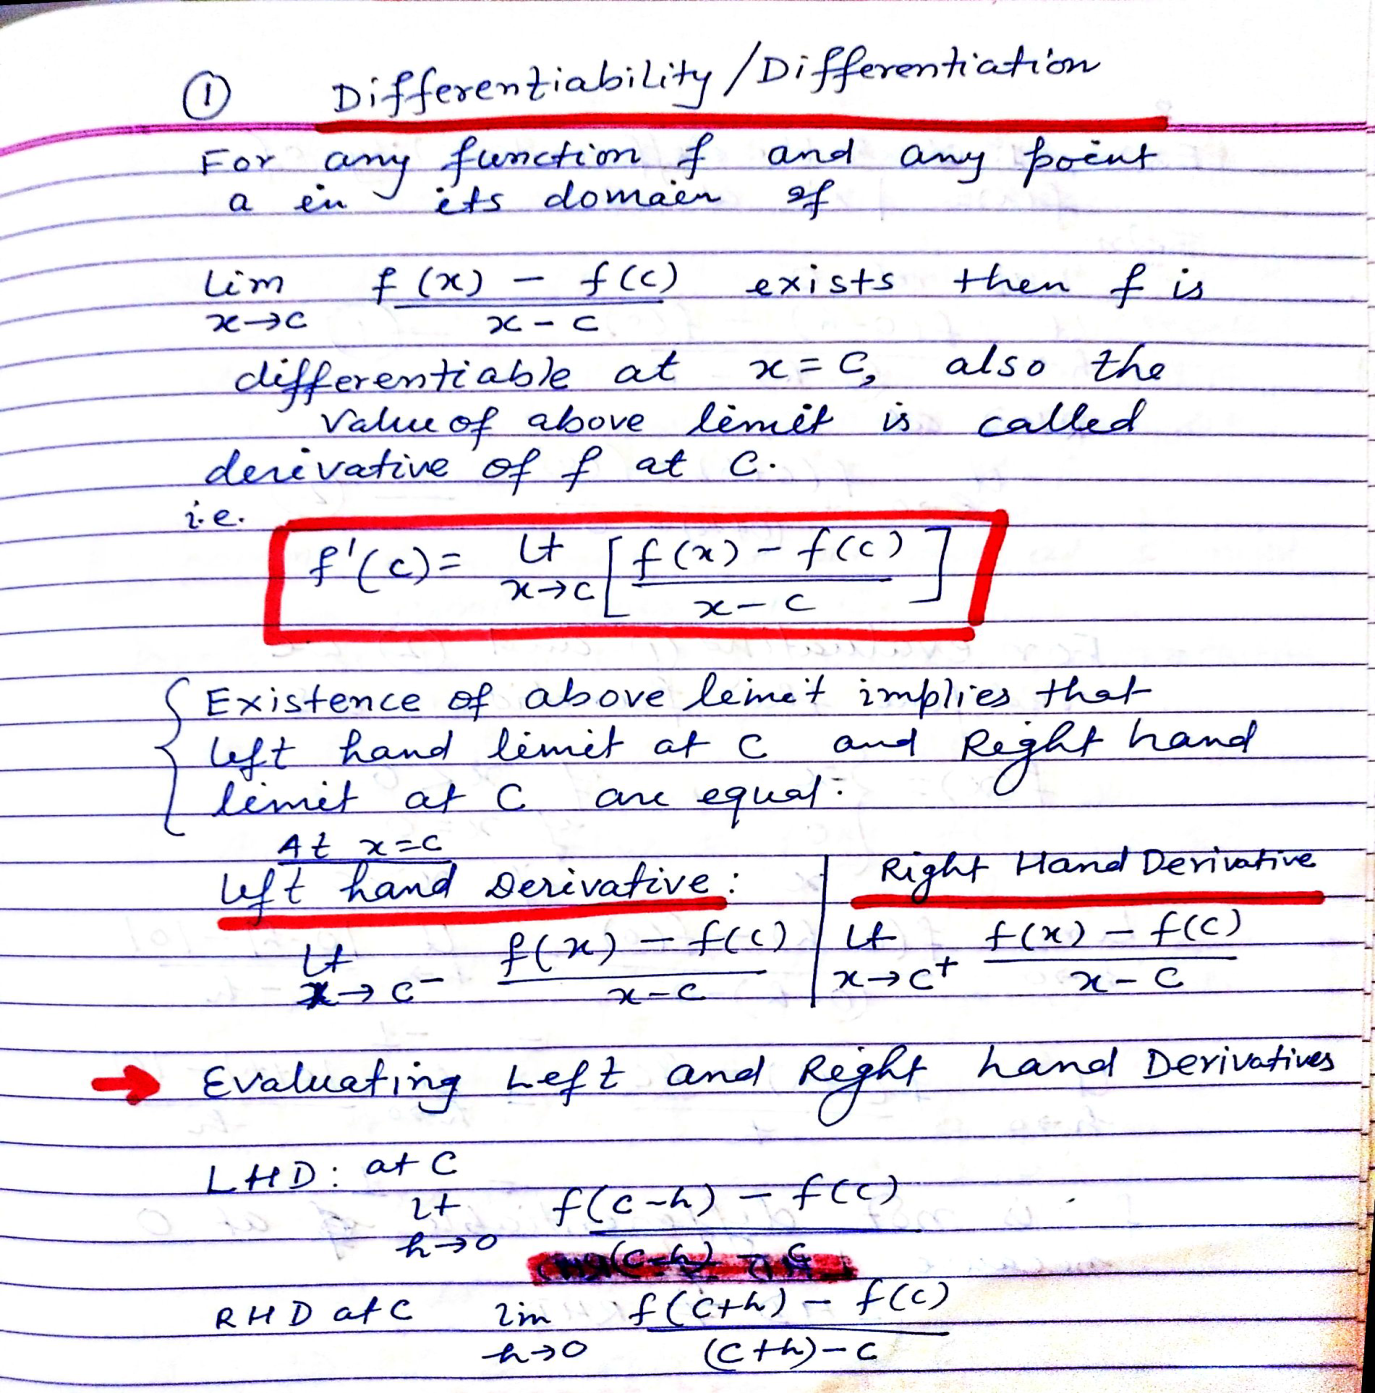 ① Differentiability/Differentiation
For any function f and any point
a in its domain if
lim f(x) - f(c) exists then f is
x→c x-c
differentiable at x=c, also the
value of above limit is called
derivative of f at c.
i.e.
f'(c)= Lt [f(x)-f(c)]
x→c x-c
Existence of above limit implies that
left hand limit at c and Right hand
limit at c are equal:
At x=c
left hand Derivative: Right Hand Derivative
Lt f(x)-f(c) Lt f(x)-f(c)
x→c⁻ x-c x→c⁺ x-c
→ Evaluating Left and Right hand Derivatives
LHD: at c
Lt f(c-h) - f(c)
h→0 (c-h) - c
RHD at c lim f(c+h) - f(c)
h→0 (c+h)-c